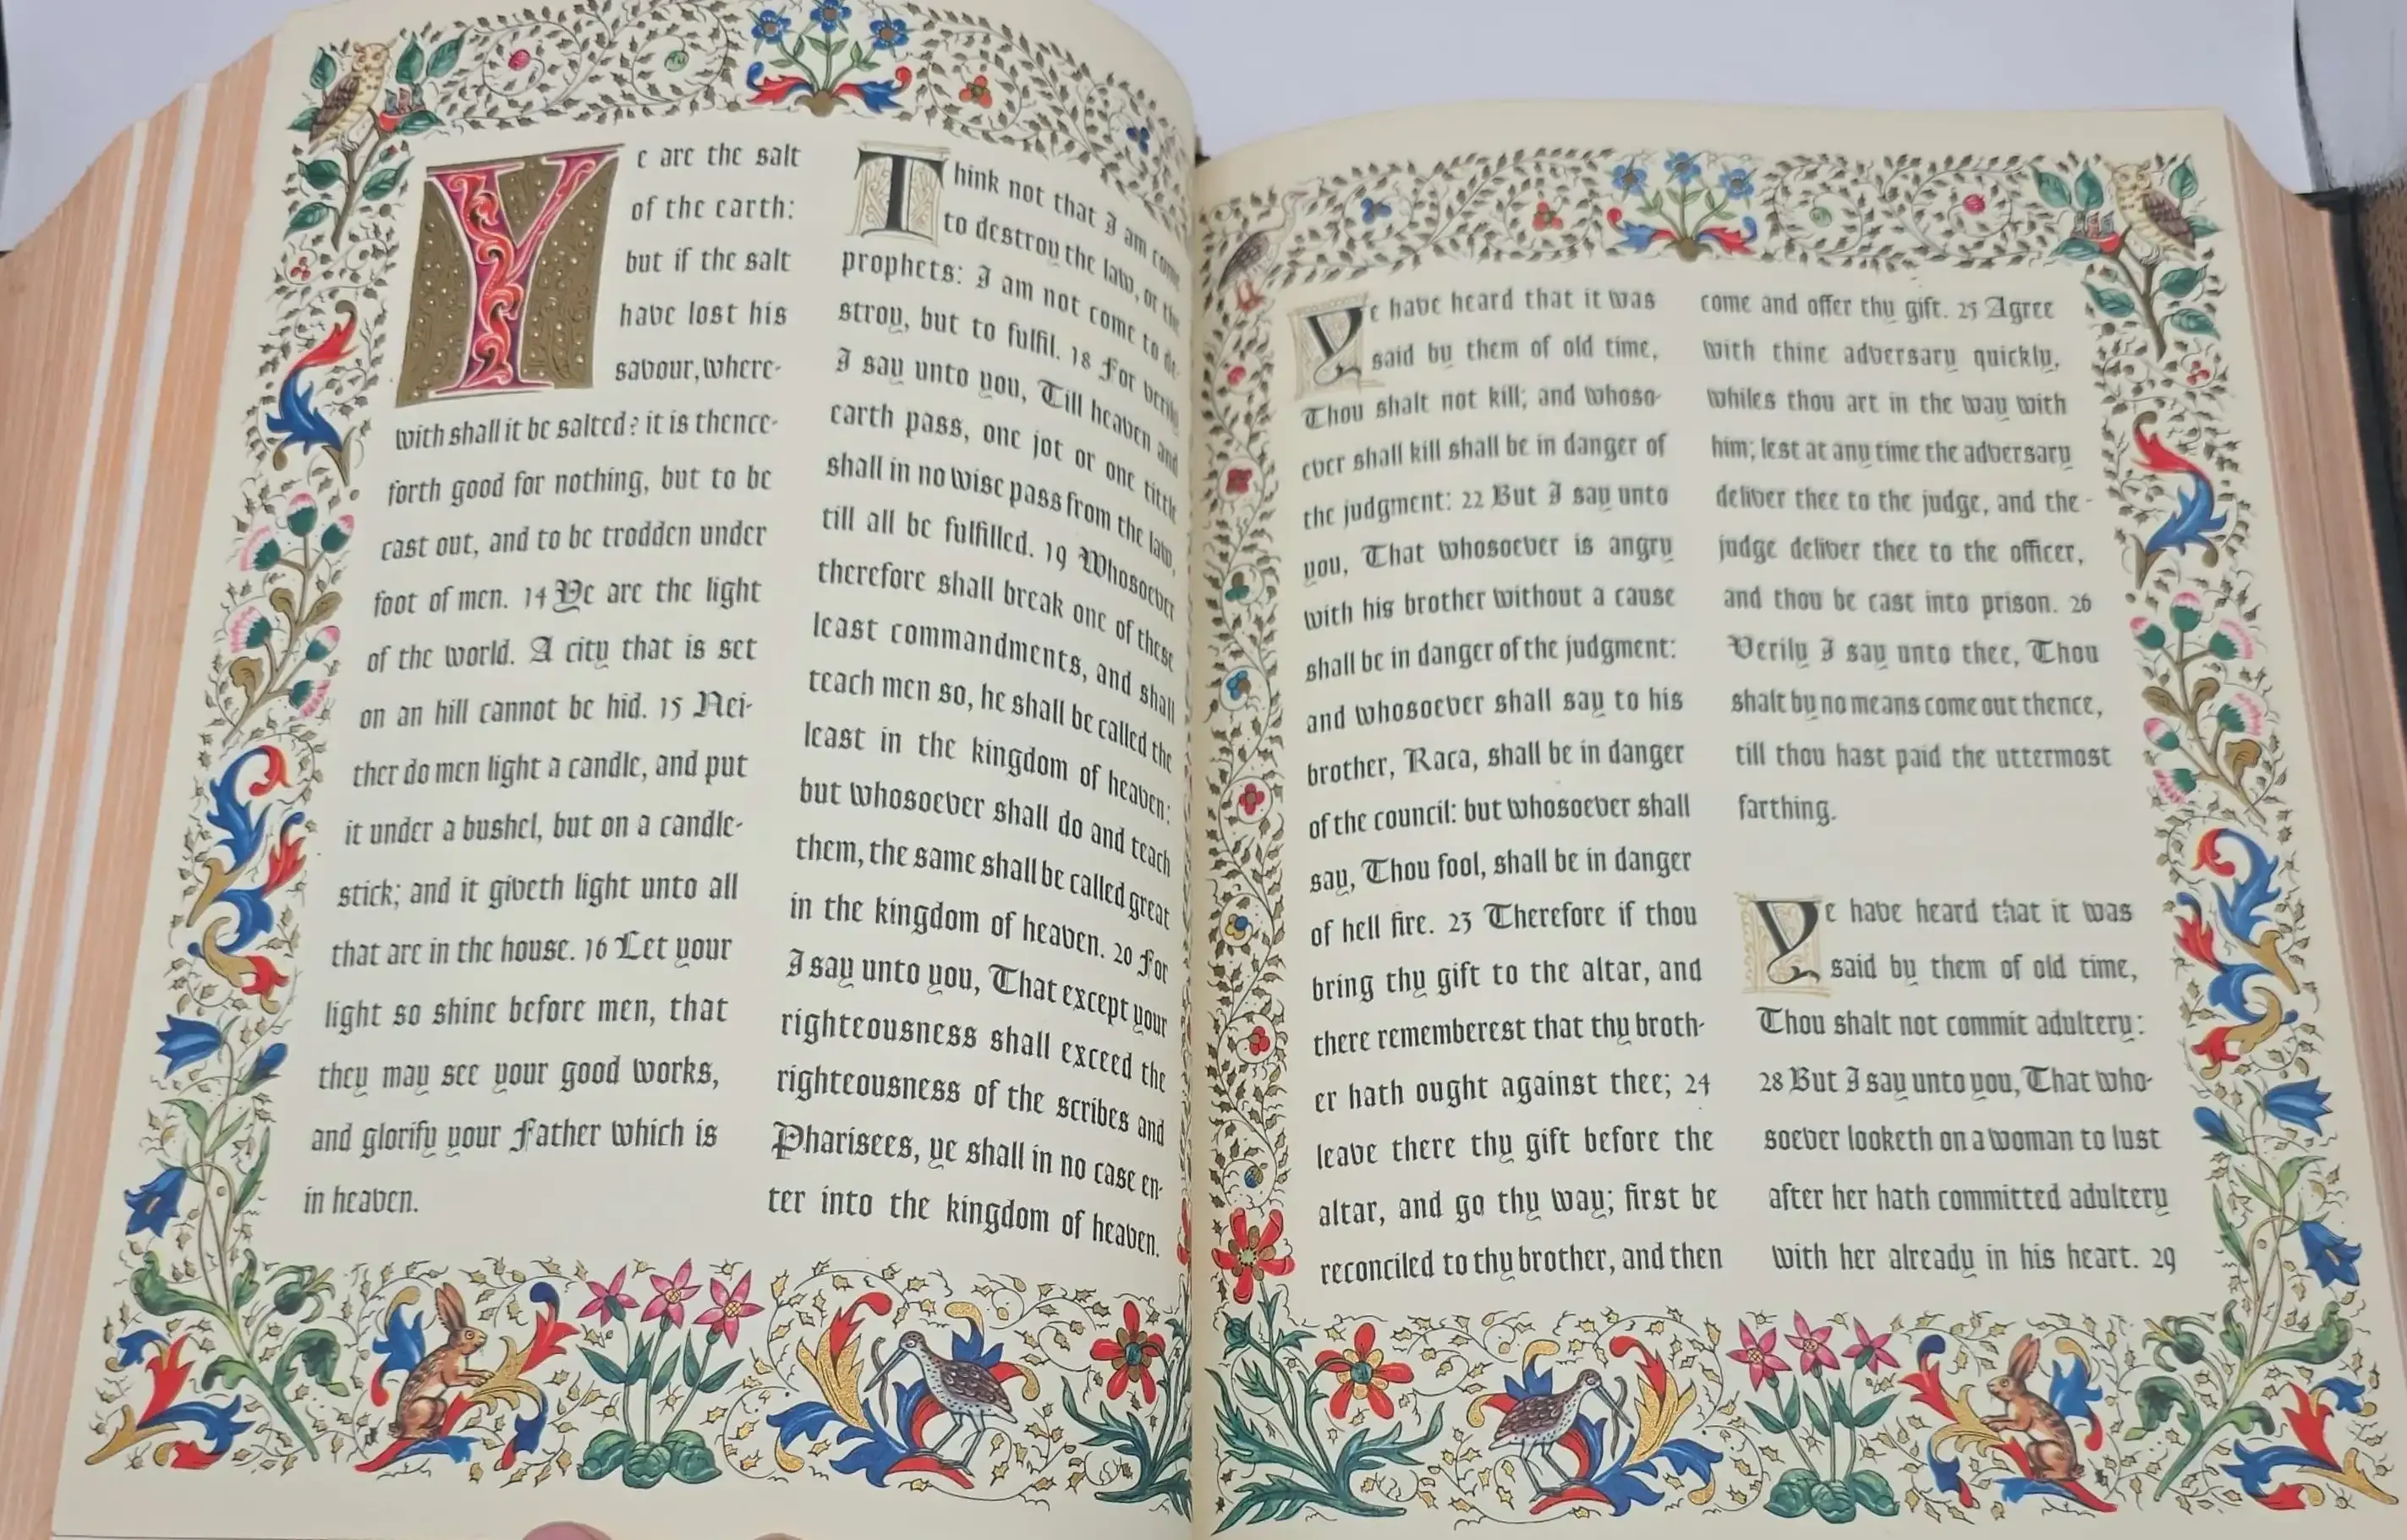 Ye are the salt
of the earth:
but if the salt
have lost his
savour, where-
with shall it be salted? it is thence-
forth good for nothing, but to be
cast out, and to be trodden under
foot of men. 14 Ye are the light
of the world. A city that is set
on an hill cannot be hid. 15 Nei-
ther do men light a candle, and put
it under a bushel, but on a candle-
stick; and it giveth light unto all
that are in the house. 16 Let your
light so shine before men, that
they may see your good works,
and glorify your Father which is
in heaven.
Think not that I am come
to destroy the law, or the
prophets: I am not come to de-
stroy, but to fulfil. 18 For verily
I say unto you, Till heaven and
earth pass, one jot or one tittle
shall in no wise pass from the law,
till all be fulfilled. 19 Whosoever
therefore shall break one of these
least commandments, and shall
teach men so, he shall be called the
least in the kingdom of heaven:
but whosoever shall do and teach
them, the same shall be called great
in the kingdom of heaven. 20 For
I say unto you, That except your
righteousness shall exceed the
righteousness of the scribes and
Pharisees, ye shall in no case en-
ter into the kingdom of heaven.
Ye have heard that it was
said by them of old time,
Thou shalt not kill; and whoso-
ever shall kill shall be in danger of
the judgment: 22 But I say unto
you, That whosoever is angry
with his brother without a cause
shall be in danger of the judgment:
and whosoever shall say to his
brother, Raca, shall be in danger
of the council: but whosoever shall
say, Thou fool, shall be in danger
of hell fire. 23 Therefore if thou
bring thy gift to the altar, and
there rememberest that thy broth-
er hath ought against thee; 24
leave there thy gift before the
altar, and go thy way; first be
reconciled to thy brother, and then
come and offer thy gift. 25 Agree
with thine adversary quickly,
whiles thou art in the way with
him; lest at any time the adversary
deliver thee to the judge, and the -
judge deliver thee to the officer,
and thou be cast into prison. 26
Verily I say unto thee, Thou
shalt by no means come out thence,
till thou hast paid the uttermost
farthing.
Ye have heard that it was
said by them of old time,
Thou shalt not commit adultery:
28 But I say unto you, That who-
soever looketh on a woman to lust
after her hath committed adultery
with her already in his heart. 29